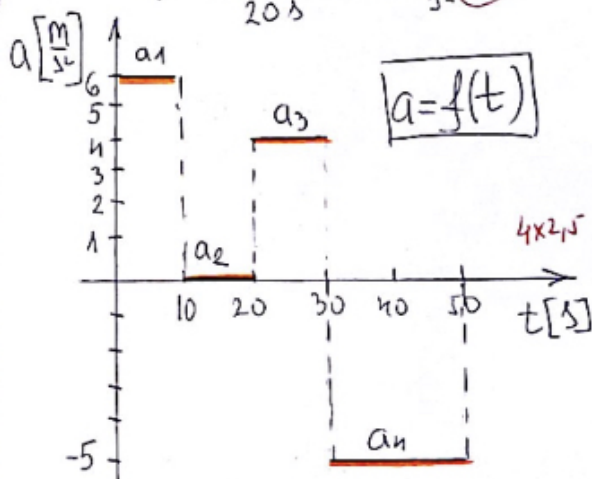 20 s
a [m/s²]
a1
6
5
4
3
2
1
a2
a3
a=f(t)
4x2,5
10 20 30 40 50
t[s]
-5
a4